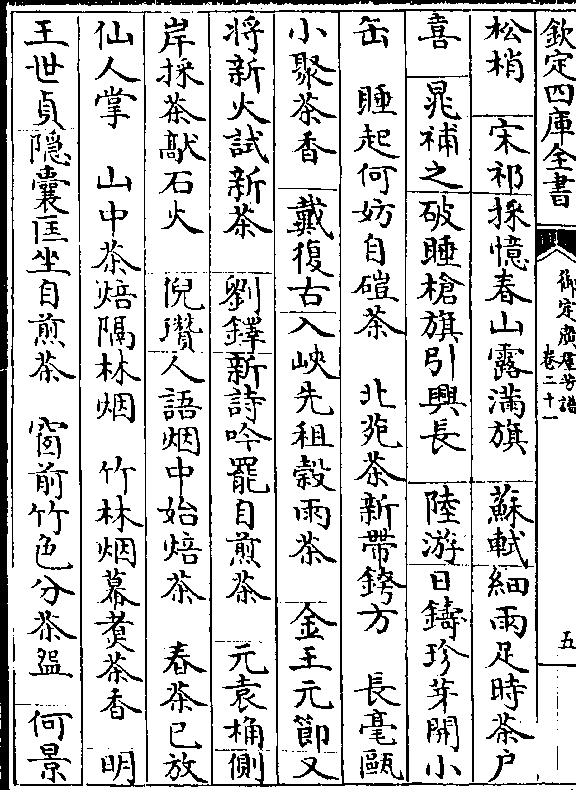 欽定四庫全書
御定廣羣芳譜
卷二十一
五
松梢　宋祁採憶春山露滿旗　蘇軾細雨足時茶戶
喜　晁補之破睡槍旗引興長　陸游日鑄珍芽開小
缶　睡起何妨自磑茶　北苑茶新帶銙方　長毫甌
小聚茶香　戴復古入峽先租榖雨茶　金王元節又
将新火試新茶　劉鐸新詩吟罷自煎茶　元袁桷側
岸採茶鬳石火　倪瓚人語烟中始焙茶　春茶已放
仙人掌　山中茶焙隔林烟　竹林烟幕煑茶香　明
王世貞隠囊匡坐自煎茶　窗前竹色分茶盌　何景